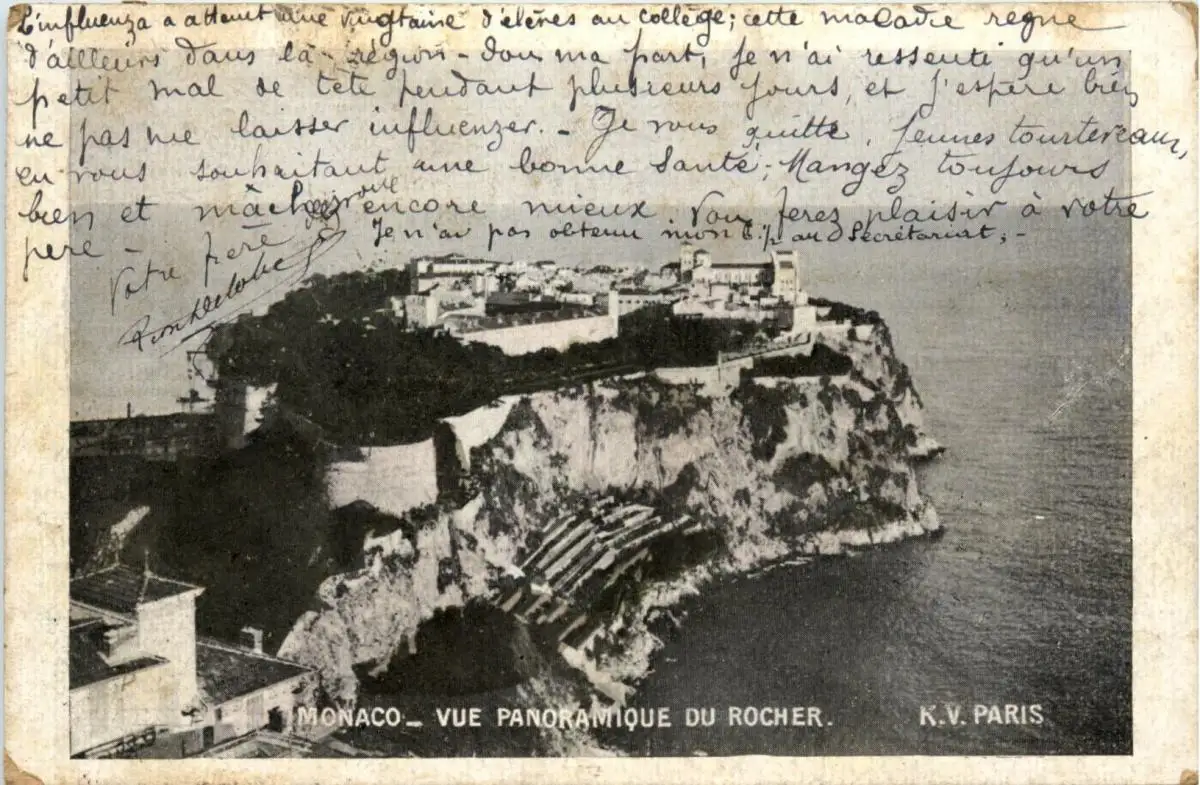 L'influenza a atteint une vingtaine d'élèves au collège; cette maladie règne
d'ailleurs dans la région - Pour ma part, je n'ai ressenti qu'un
petit mal de tête pendant plusieurs jours, et j'espère bien
ne pas me laisser influenzer. - Je vous quitte, jeunes tourtereaux,
en vous souhaitant une bonne santé; Mangez toujours
bien et mâchez encore mieux. Vous ferez plaisir à votre
père -
Votre frère
Je n'ai pas obtenu mon au Secrétariat; -
MONACO - VUE PANORAMIQUE DU ROCHER.
K.V. PARIS